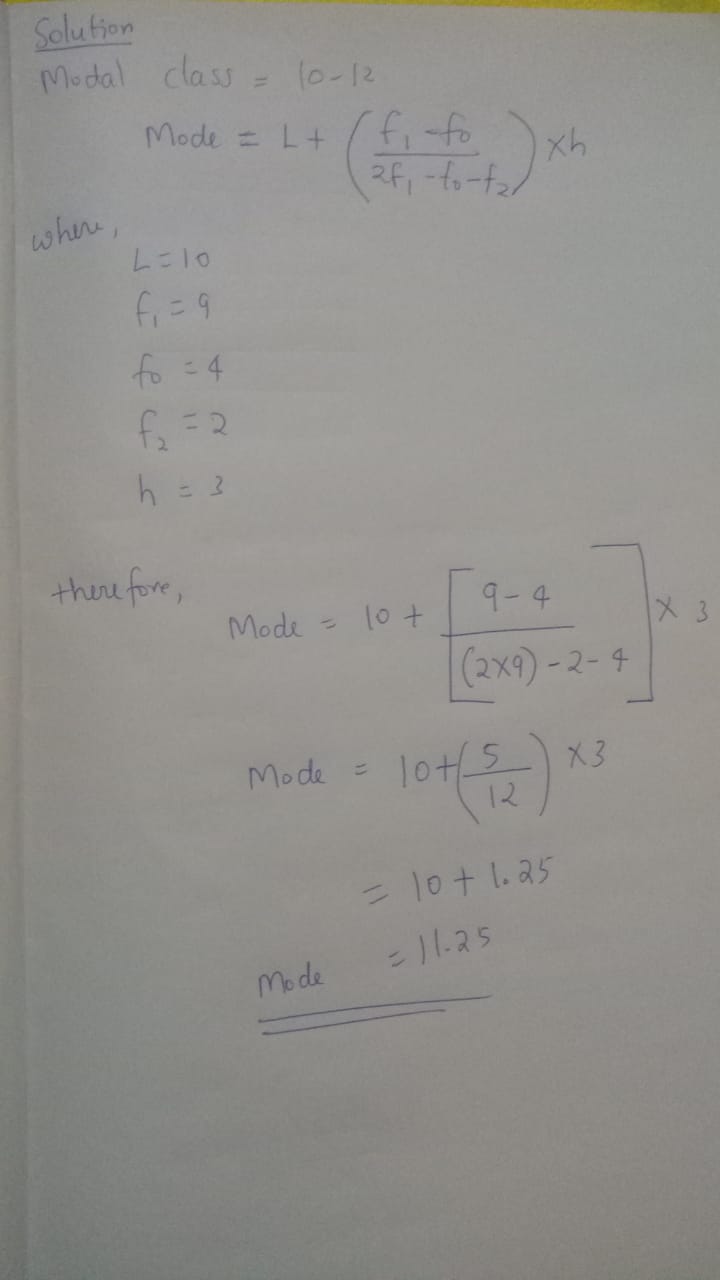 Solution
Modal class = 10-12
Mode = L + (f₁ - f₀ / 2f₁ - f₀ - f₂) xh
where,
L = 10
f₁ = 9
f₀ = 4
f₂ = 2
h = 3
therefore,
Mode = 10 + [9 - 4 / (2x9) - 2 - 4] x 3
Mode = 10 + (5 / 12) x3
= 10 + 1.25
Mode = 11.25